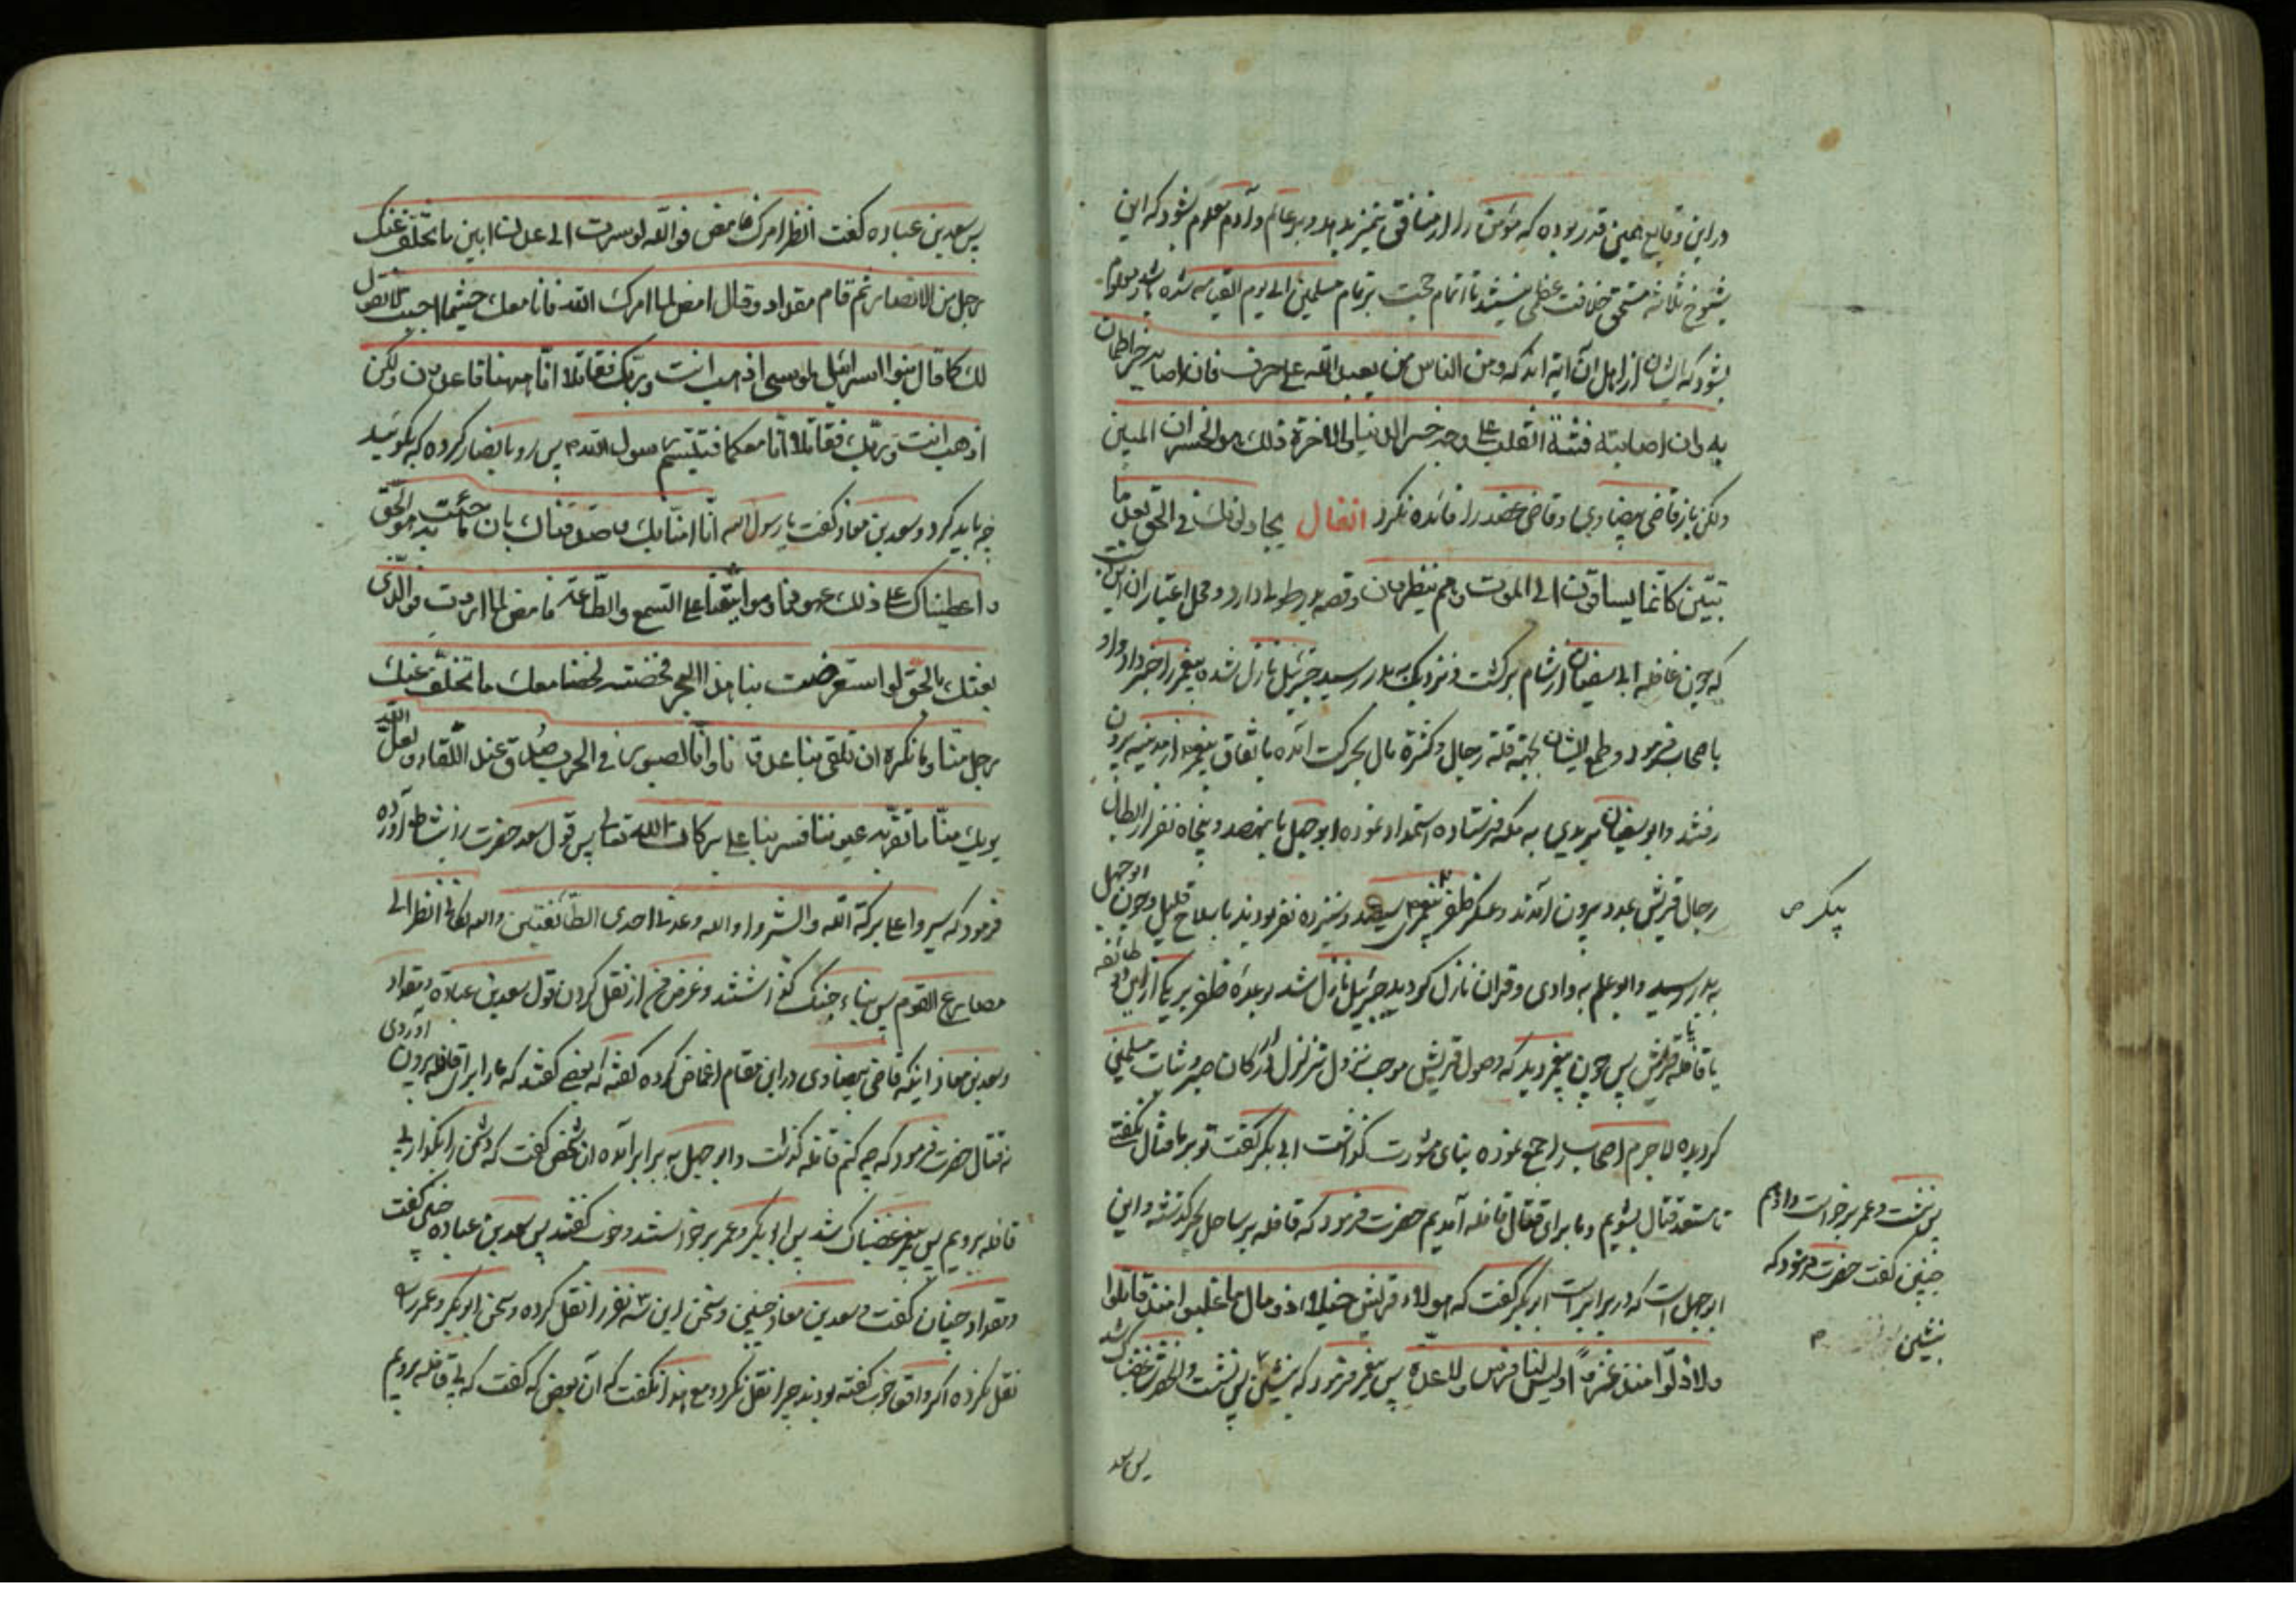 در این وقایع همین قدر بوده که مؤمن را از منافق تمیز بدهد و بر عالم و آدم معلوم بشود که این
شیوخ ثلاثه مستحق خلافت عظمی نیستند تا اتمام حجت بر تمام مسلمین الی یوم القیامه شده باشد و معلوم
بشود که ایشان از اهل آن آیه اند که ومن الناس من یعبد الله علی حرف فان اصابه خیر اطمان
به وان اصابته فتنة انقلب علی وجه خسر الدنیا والاخرة ذلک هو الخسران المبین
ولکن باز قاضی بیضاوی و قاضی عضد را فائده نکرد انفال یجادلونک فی الحق بعد ما
تبیّن کانّما یساقون الی الموت وهم ینظرون وقصه بدر طولها دارد و محل اعتبار ان این است
که چون قافله ابی سفیان از شام برگشت و نزدیک به بدر رسید جبرئیل نازل شده پیغمبر را خبر داد و او
باصحاب فرمود و طمع ایشان بجهة قلة رجال و کثرة مال بحرکت آمده باتفاق پیغمبر از مدینه بیرون
رفتند و ابو سفیان بریدی به مکه فرستاده استمداد نموده ابو جهل با نهصد و پنجاه نفر از ابطال
رجال قریش بمدد بیرون آمدند و عسکر ظفر پیغمبر سیصد و سیزده نفر بودند با سلاح قلیل و چون ابو جهل
پیکر ص
به بدر رسید و ابو علم به وادی دقران نازل گردید جبرئیل نازل شد بوعدۀ ظفر بر یکی از این دو طائفه
یا قافله یا قریش پس چون پیغمبر دید که وصول قریش موجب نزول تزلزل در ارکان صبر و ثبات مسلمین
گردیده لاجرم اصحاب را جمع نموده بنای مشورت گذاشت ابی بکر گفت تو بر ما قتال نگفتی
تا مستعد قتال بشویم و ما برای قتال قافله آمدیم حضرت فرمود که قافله بر ساحل بحر گذشته و این
ابو جهل است که در برابر است ابو بکر گفت که هولاء قریش خیلاء ذو مال ما غلبوا منذ قاتلوا
ولا ذلّوا منذ عزّوا ولیس لنا فرس ولا عدّة پس پیغمبر فرمود که بنشین پس نشست و الحضرت غضبناک شد
پس نشست و عمر برخواست و او هم
چنین گفت حضرت فرمود که
بنشین
پس سعد
پس سعد بن عباده گفت انظر امرک فامض فوالله لو سرت الی عدن ابین ما تخلف عنک
رجل من الانصار ثم قام مقداد وقال امض لما امرک الله فانا معک حیثما احببت لا نقول
لک کما قال بنوا اسرائیل لموسی اذهب انت وربّک فقاتلا انّا ههنا قاعدون ولکن
اذهب انت وربّک فقاتلا انا معکما فتبسّم رسول الله ص پس رو بانصار کرده که بگوئید
چه باید کرد و سعد بن معاذ گفت یا رسول الله انّا امنّا بک وصدقناک بان ما جئت به هو الحق
واعطیناک علی ذلک عهودنا ومواثیقنا علی السمع والطّاعة فامض لما اردت فوالّذی
بعثک بالحق لو استعرضت بنا هذا البحر فخضته لخضنا معک ما تخلّف عنک
رجل منّا وما نکره ان تلقی بنا عدوّنا وانّا لصبور فی الحرب صُدق عند اللّقاء ولعلّ الله
یریک منّا ما تقرّ به عیوننا فسر بنا علی برکات الله تعالی پس قول سعد حضرت را بنشاط آورده
فرمود که سیروا علی برکة الله وابشروا والله وعدنی احدی الطّائفتین والله لکانی انظر الی
مصارع القوم پس بناء جنگ گذاشتند و غرض م از نقل کردن قول سعد بن عبادة و مقداد
و سعد بن معاذ اینکه قاضی بیضاوی در این مقام اغماض کرده گفته که بعضی گفتند که ما را برای قافله بیرون آوردی
نه قتال حضرت فرمود که چه کنم قافله گذشت و ابو جهل به برابر آمده ان شخص گفت که دشمن را بگذار پی
قافله برویم پس پیغمبر غضبناک شد پس ابو بکر و عمر برخواستند و خوب گفتند پس سعد بن عباده چنین گفت
و مقداد چنان گفت و سعد بن معاذ چنین و سخن این سه نفر را نقل کرده و سخن ابو بکر و عمر را
نقل نکرده اگر واقع خوب گفته بودند چرا نقل نکرد و مع هذا نگفت که آن بعض که گفت که پی قافله برویم